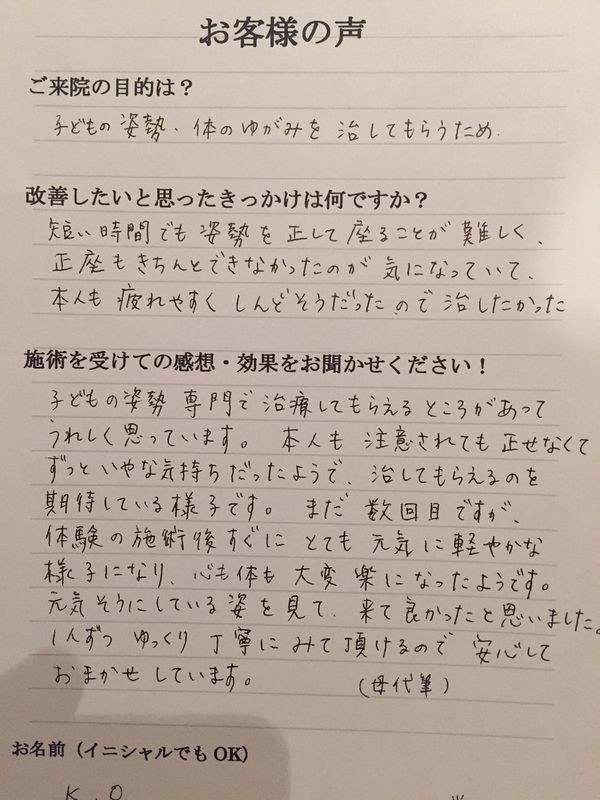 お客様の声
ご来院の目的は？
子どもの姿勢・体のゆがみを治してもらうため.
改善したいと思ったきっかけは何ですか？
短い時間でも姿勢を正して座ることが難しく、
正座もきちんとできなかったのが気になっていて、
本人も疲れやすくしんどそうだったので治したかった
施術を受けての感想・効果をお聞かせください！
子どもの姿勢専門で治療してもらえるところがあって
うれしく思っています。本人も注意されても正せなくて
ずっといやな気持ちだったようで、治してもらえるのを
期待している様子です。まだ数回目ですが、
体験の施術後すぐにとても元気に軽やかな
様子になり、心も体も大変楽になったようです。
元気そうにしている姿を見て、来て良かったと思いました。
1人ずつゆっくり丁寧にみて頂けるので安心して
おまかせしています。（母代筆）
お名前（イニシャルでもOK）
K.O